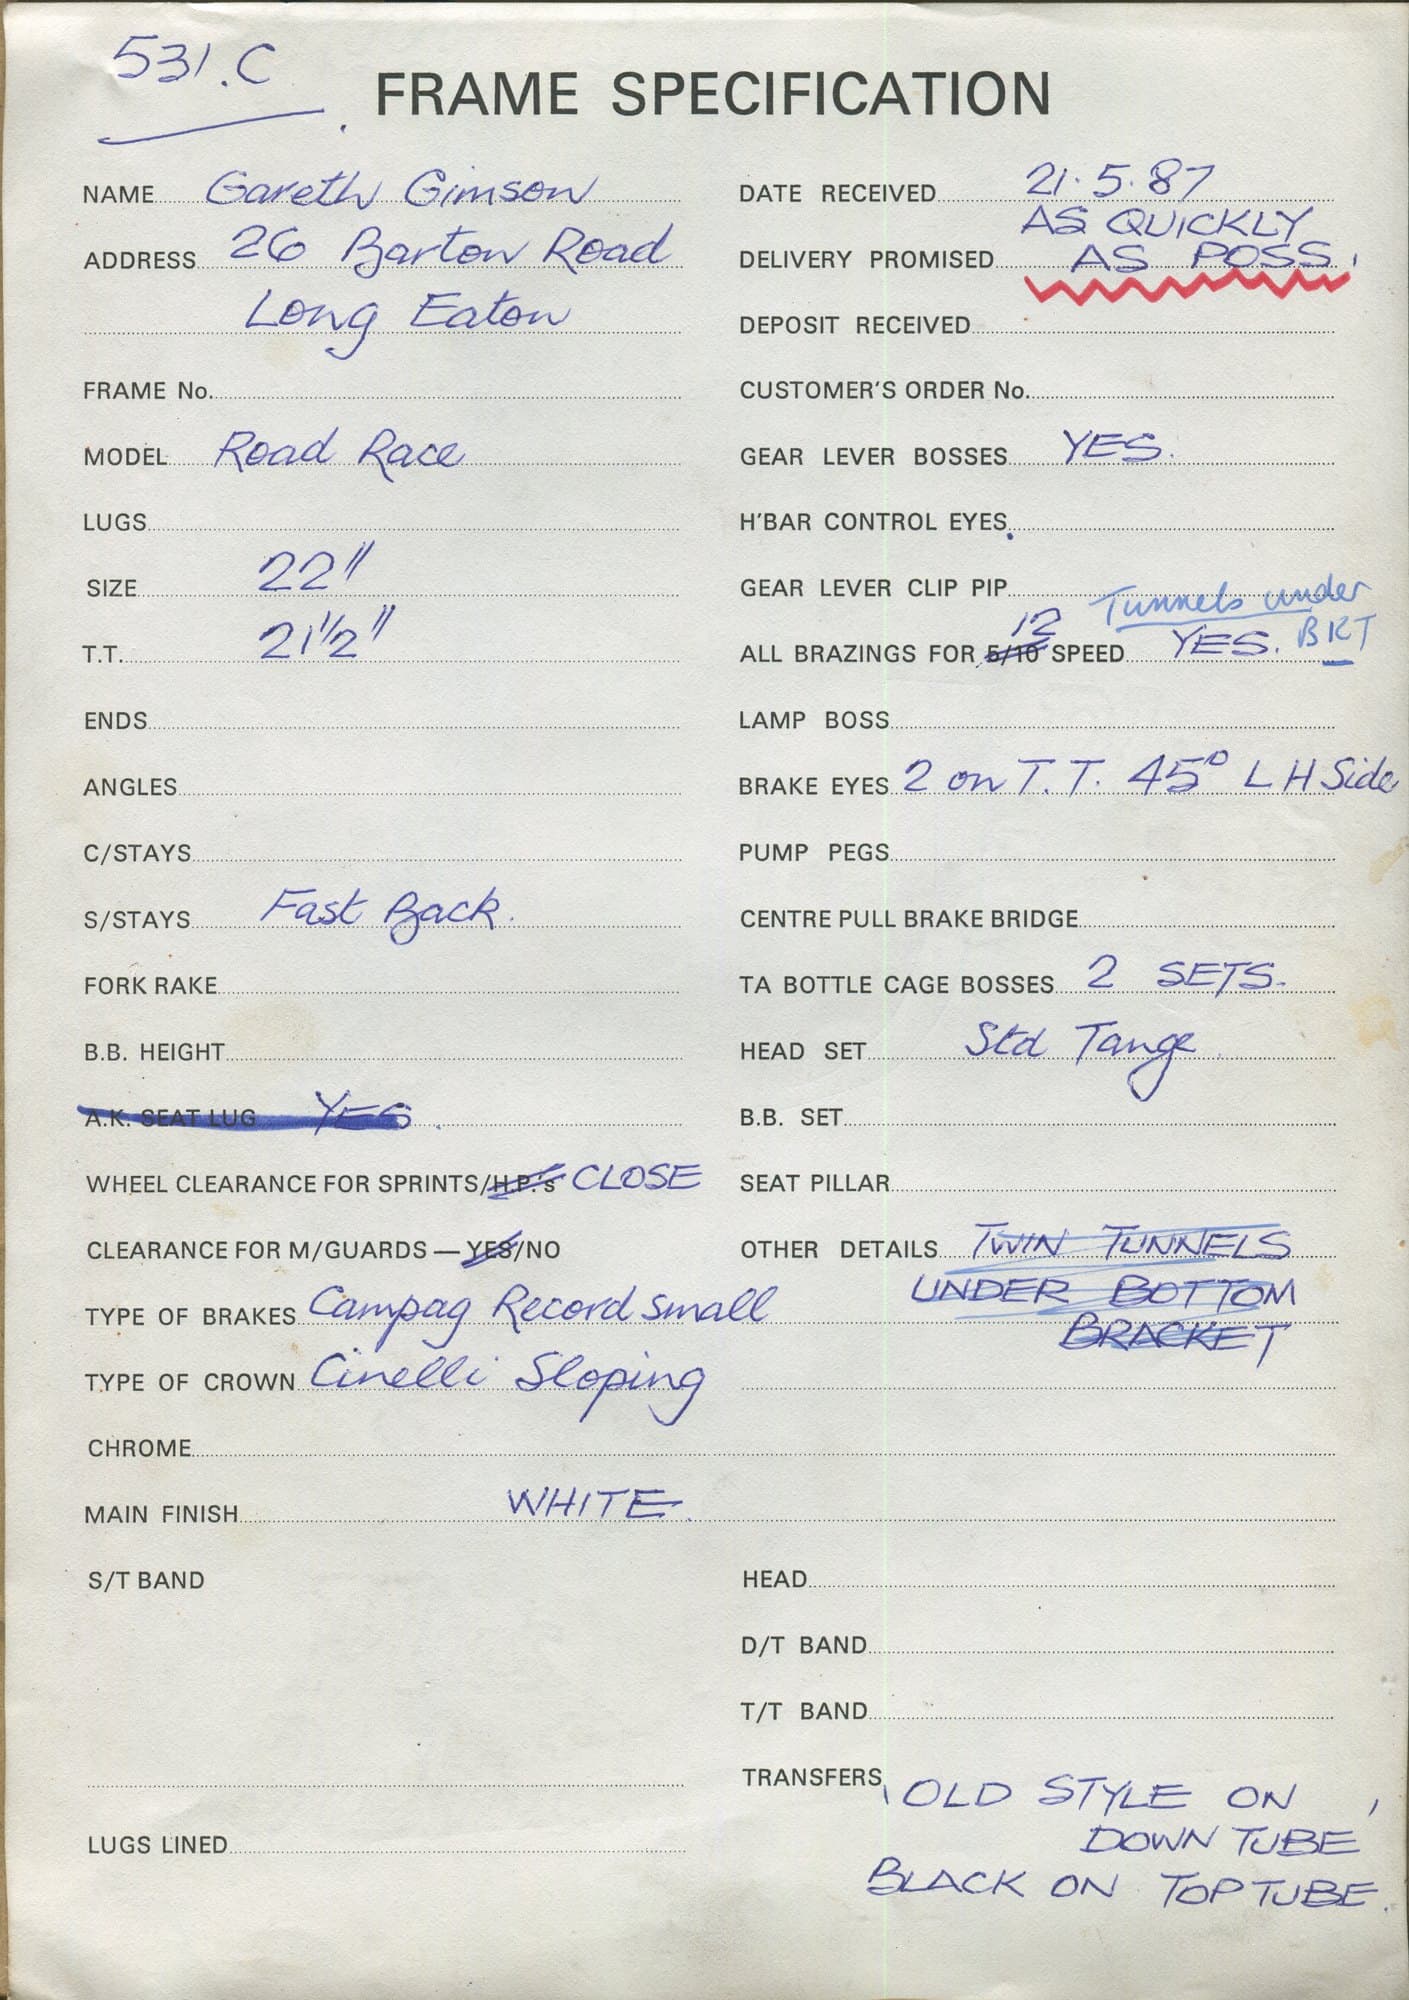 531.C
FRAME SPECIFICATION
NAME Gareth Gimson
ADDRESS 26 Barton Road
Long Eaton
FRAME No.
MODEL Road Race
LUGS
SIZE 22"
T.T. 21½"
ENDS
ANGLES
C/STAYS
S/STAYS Fast Back.
FORK RAKE
B.B. HEIGHT
A.K. SEAT LUG YES.
WHEEL CLEARANCE FOR SPRINTS/H.P.'s CLOSE
CLEARANCE FOR M/GUARDS — YES/NO
TYPE OF BRAKES Campag Record small
TYPE OF CROWN Cinelli Sloping
CHROME
MAIN FINISH WHITE.
S/T BAND
LUGS LINED
DATE RECEIVED 21.5.87
AS QUICKLY
DELIVERY PROMISED AS POSS.
DEPOSIT RECEIVED
CUSTOMER'S ORDER No.
GEAR LEVER BOSSES YES.
H'BAR CONTROL EYES
GEAR LEVER CLIP PIP
Tunnels under
12
ALL BRAZINGS FOR 5/10 SPEED YES. BKT
LAMP BOSS
BRAKE EYES 2 on T.T. 45° LH Side
PUMP PEGS
CENTRE PULL BRAKE BRIDGE
TA BOTTLE CAGE BOSSES 2 SETS.
HEAD SET Std Tange.
B.B. SET
SEAT PILLAR
OTHER DETAILS TWIN TUNNELS
UNDER BOTTOM
BRACKET
HEAD
D/T BAND
T/T BAND
TRANSFERS OLD STYLE ON
DOWN TUBE
BLACK ON TOP TUBE.